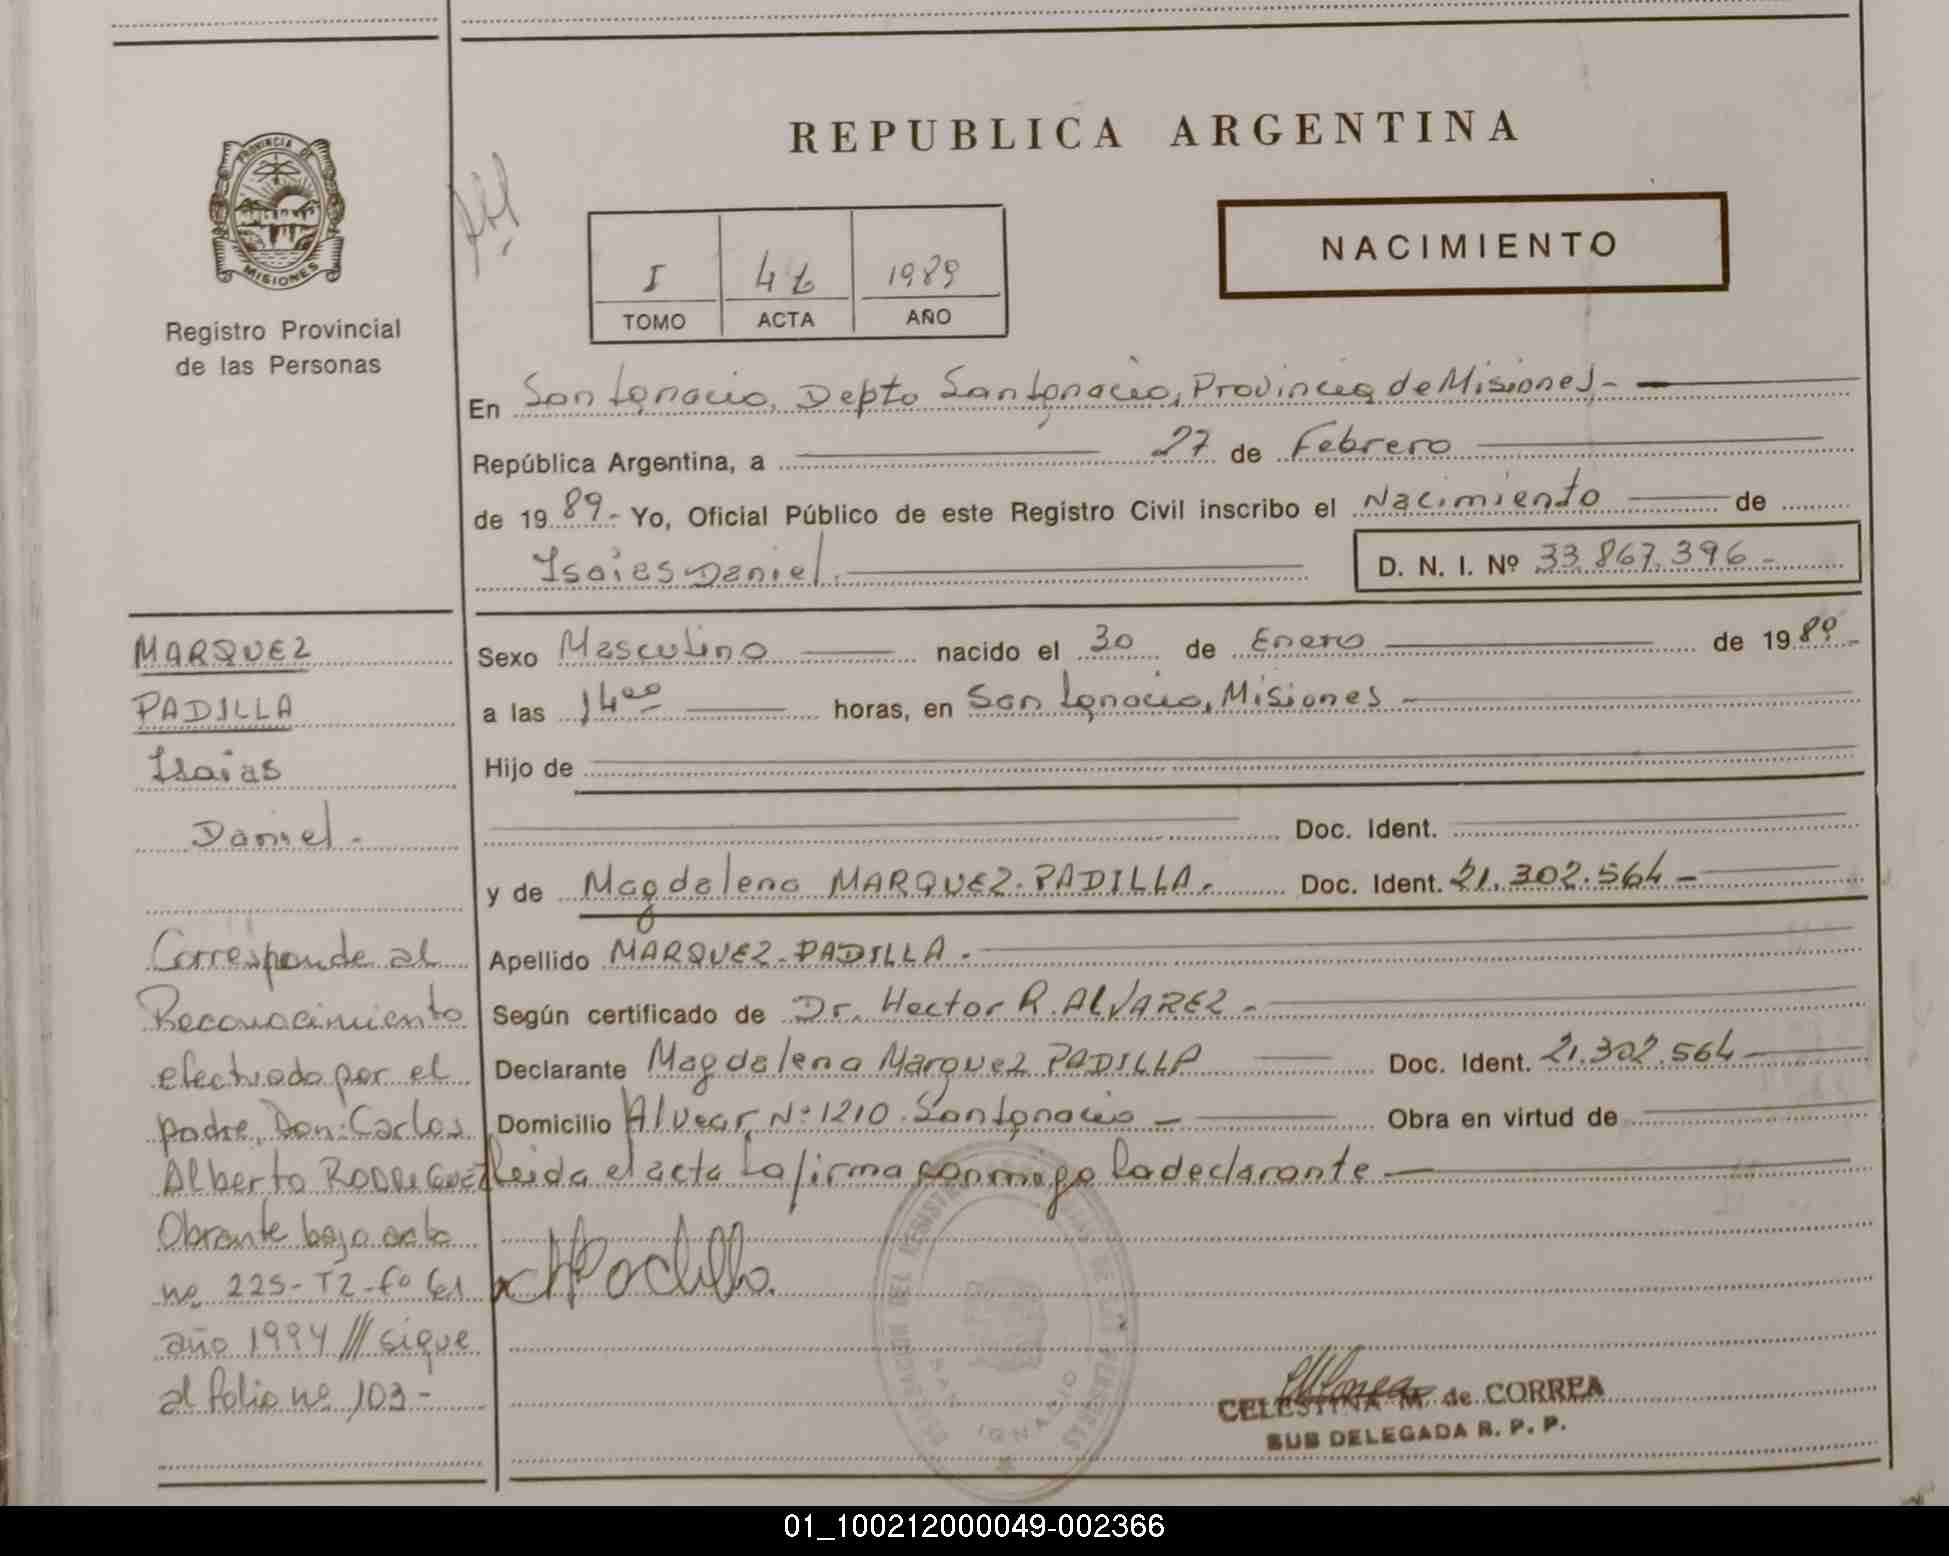 REPUBLICA ARGENTINA
PROVINCIA DE
MISIONES
Registro Provincial
de las Personas
NACIMIENTO
I 1989
TOMO ACTA AÑO
En San Ignacio, Depto San Ignacio, Provincia de Misiones -
República Argentina, a 27 de Febrero
de 1989 - Yo, Oficial Público de este Registro Civil inscribo el Nacimiento de
Isaias Daniel.
D. N. I. Nº 33.867.396 -
Sexo Masculino nacido el 30 de Enero de 1989 -
a las 14⁰⁰ horas, en San Ignacio, Misiones -
Hijo de
Doc. Ident.
y de Magdalena MARQUEZ-PADILLA. Doc. Ident. 21.302.564 -
Apellido MARQUEZ-PADILLA.
Según certificado de Dr. Hector R. ALVAREZ -
Declarante Magdalena Marquez PADILLA Doc. Ident. 21.302.564
Domicilio Alvear Nº 1210. San Ignacio - Obra en virtud de
leida el acta la firma conmigo la declarante -
MPadilla.
DELEGACION DEL REGISTRO DE LAS PERSONAS
SAN IGNACIO
CELESTINA M. de CORREA
SUB DELEGADA R. P. P.
MARQUEZ
PADILLA
Isaias
Daniel -
Corresponde al
Reconocimiento
efectuado por el
padre, Don: Carlos
Alberto RODRIGUEZ
Obrante bajo acta
nº 225-T2-fº 61
año 1994 /// sigue
al folio nº 103 -
01_100212000049-002366